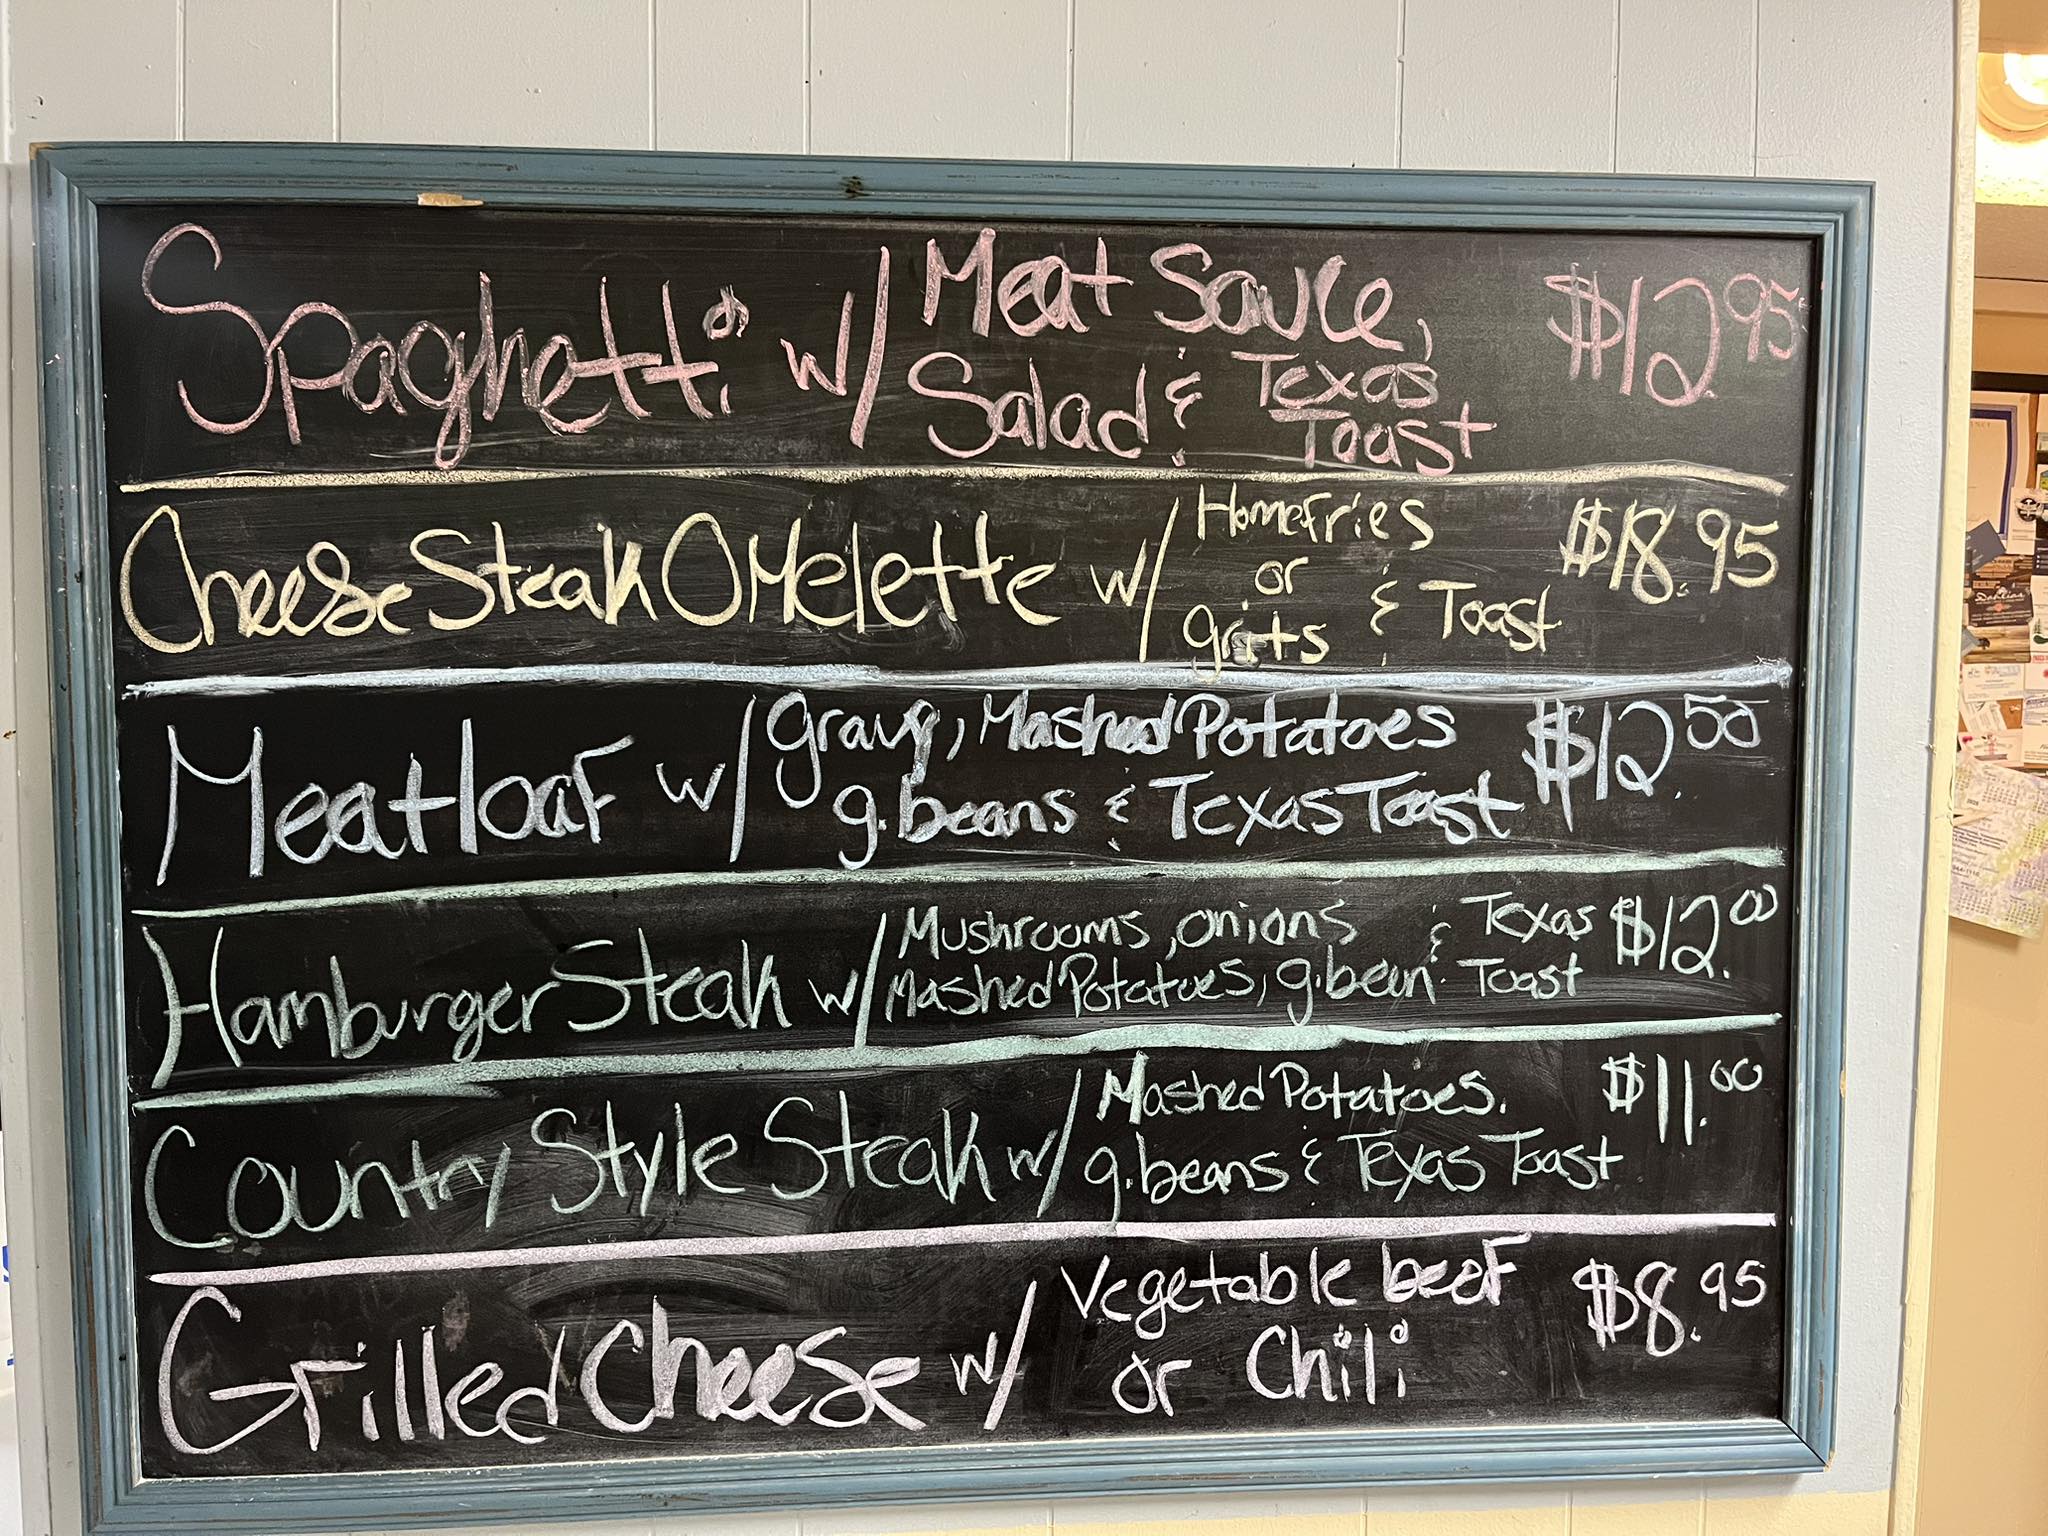 Spaghetti w/ Meat Sauce, $12.95
Salad & Texas Toast
CheeseSteak Omelette w/ Homefries $18.95
or
grits & Toast
Meatloaf w/ gravy, Mashed Potatoes $12.50
g.beans & Texas Toast
Hamburger Steak w/ Mushrooms, onions & Texas $12.00
Mashed Potatoes, g.bean Toast
Country Style Steak w/ Mashed Potatoes. $11.00
g.beans & Texas Toast
Grilled Cheese w/ Vegetable beef $8.95
or Chili